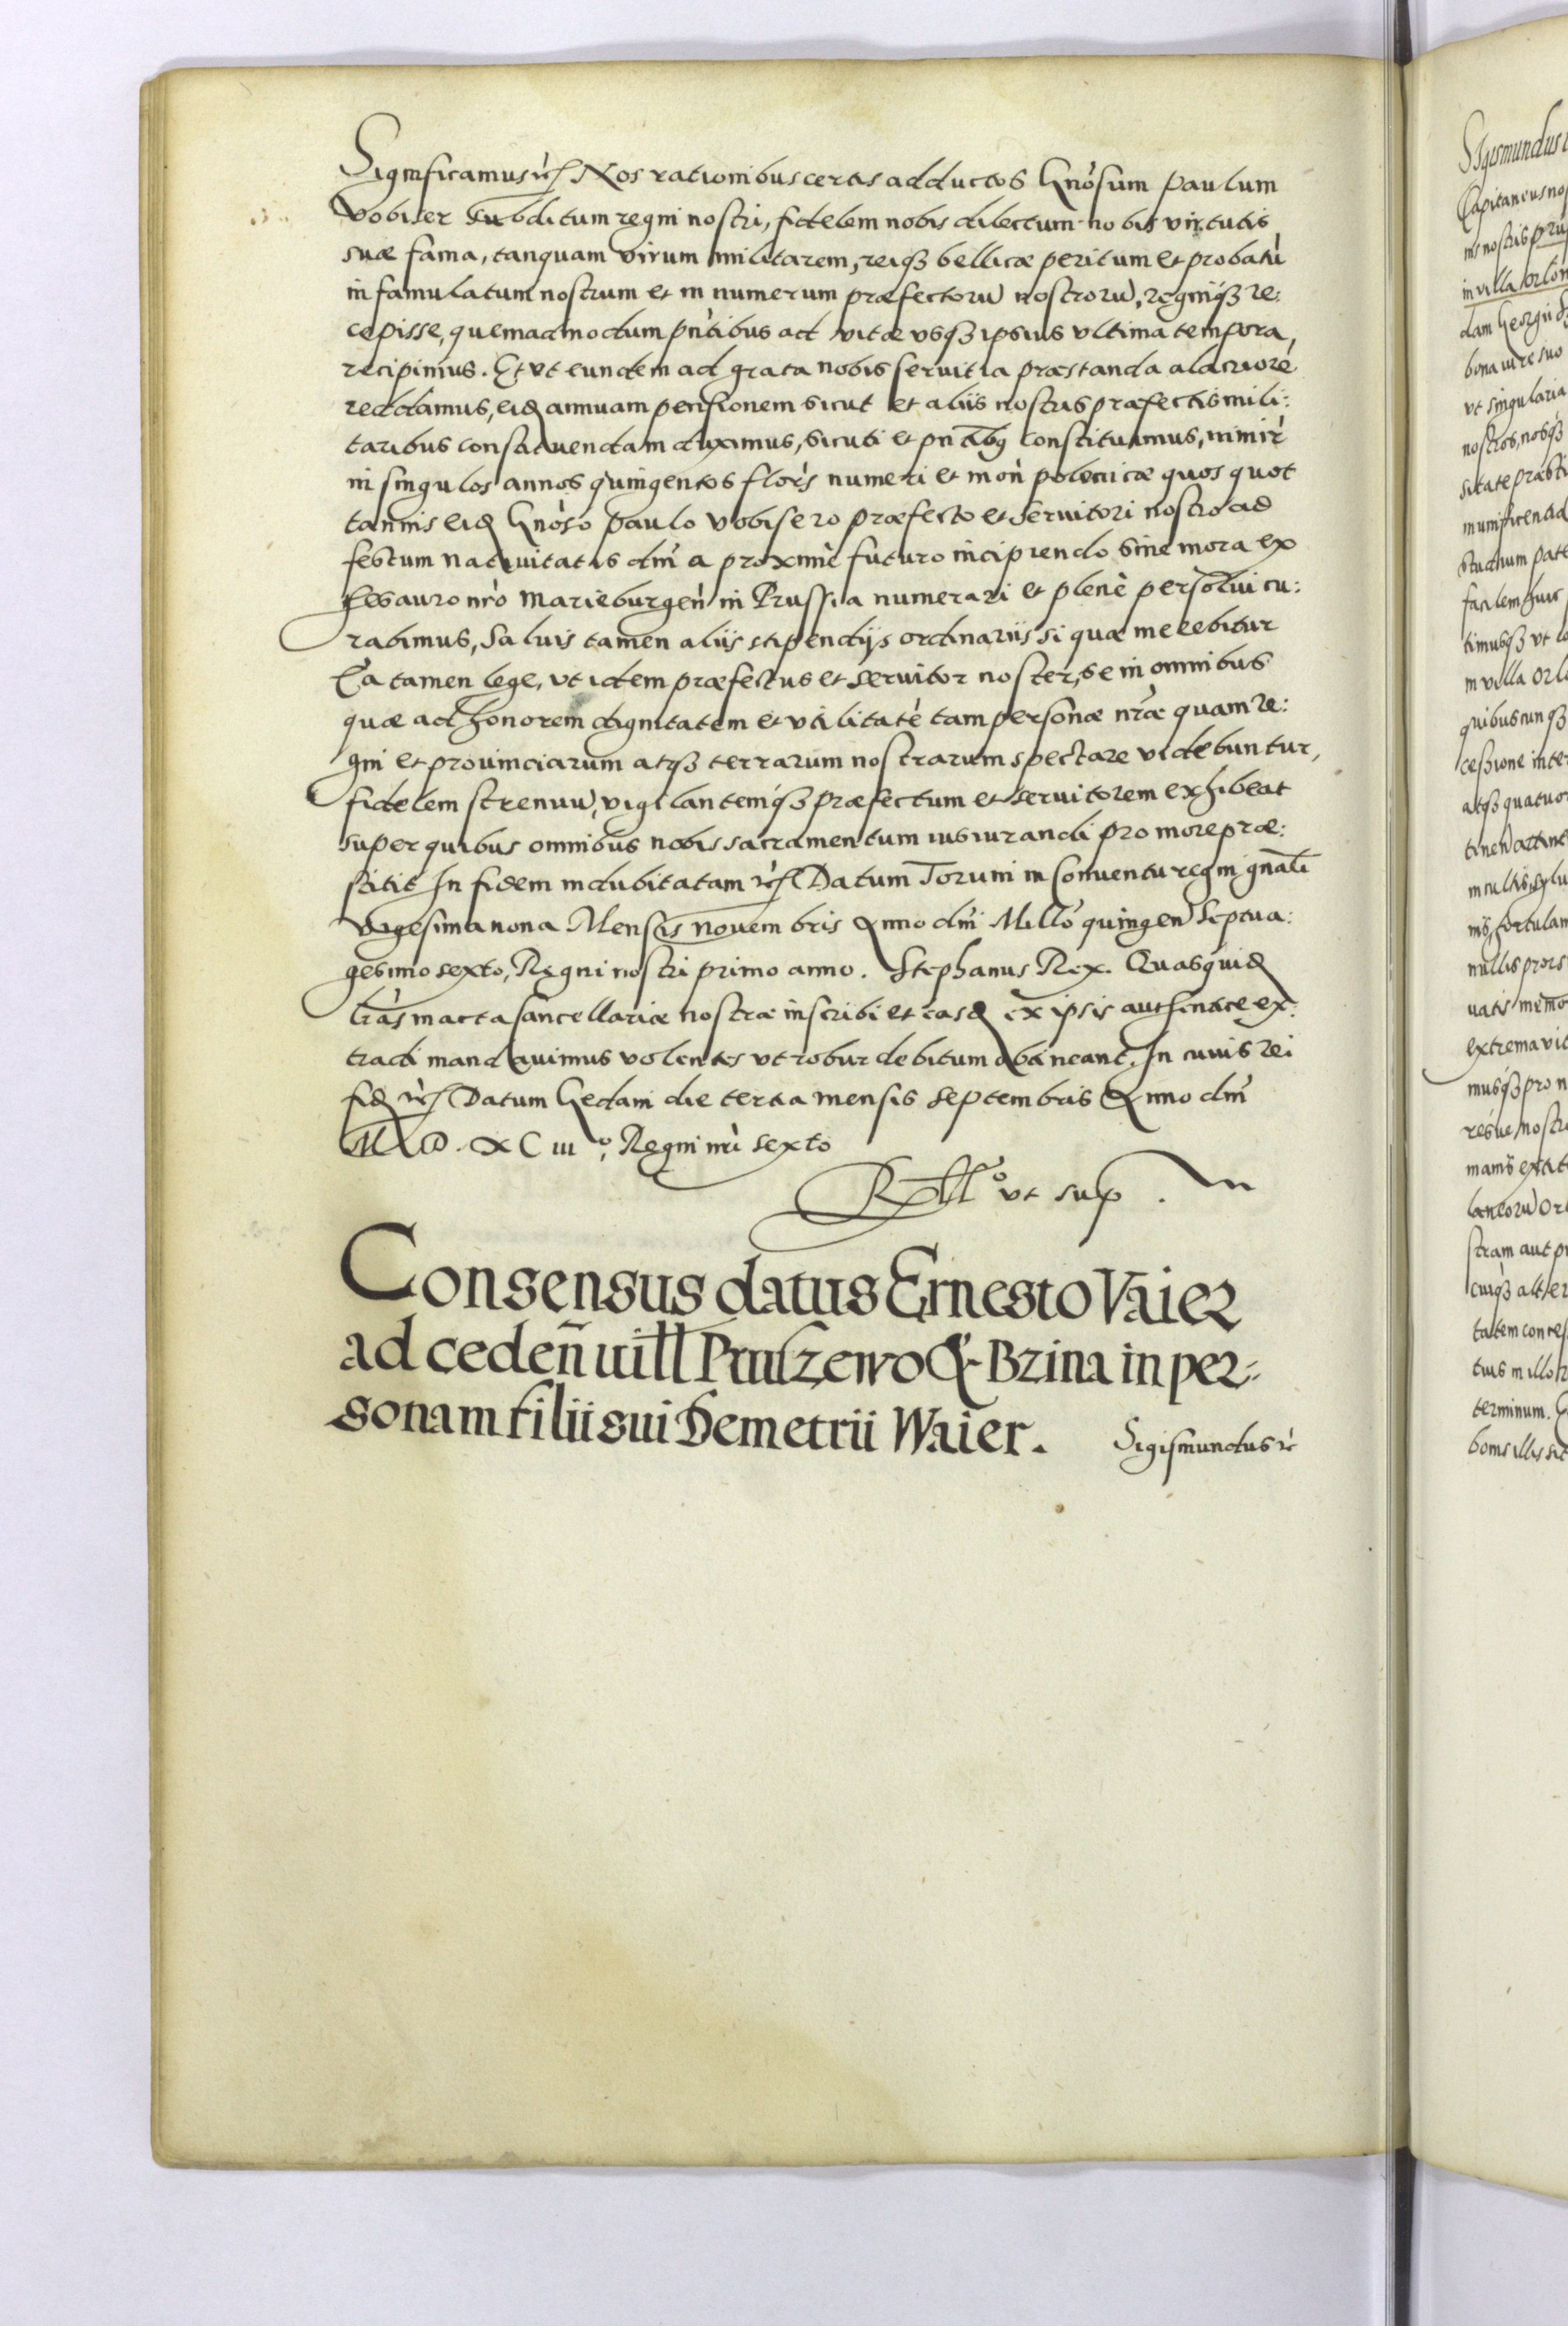 Significamus rc̃ Nos rationibus certis adductos Gnosum Paulum
Vobiser subditum regni nostri, fidelem nobis dilectum nobis virtutis
suæ fama, tanquam virum militarem, reiqȝ bellicæ peritum et probatũ
in famulatum nostrum et in numerum præfectorũ nostrorũ, regniqȝ re:
cepisse, quemadmodum pñtibus ad vitæ vsqȝ ipsius vltima tempora,
recipimus. Et vt eundem ad grata nobis seruitia præstanda alacriorẽ
reddamus, eidẽ annuam pensionem sicut et aliis nostris præfectis mili:
taribus constituendam duximus, sicuti et pñtibꝰ constituimus, nimir̃
in singulos annos quingentos flor̃s numeri et moñ polonicæ quos quot
tannis eidẽ Gnoso Paulo Vobisero præfecto et seruitori nostro ad
festum natiuitatis dñi a proximè futuro incipiendo sine mora ex
thesauro nr̃o Marieburgeñ in Prussia numerari et plenè persolui cu:
rabimus, saluis tamen aliis stipendijs ordinariis si quæ merebitur
Ea tamen lege, vt idem præfectus et seruitor noster, se in omnibus
quæ ad honorem dignitatem et vtilitatẽ tam personæ nr̃æ quam re:
gni et prouinciarum atqȝ terrarum nostrarum spectare videbuntur,
fidelem strenuũ, vigilantemqȝ præfectum et seruitorem exhibeat
super quibus omnibus nobis sacramentum iusiurandi pro more præ:
stitit In fidem indubitatam rc̃ Datum Toruni in Conuentu regni gñali
Vigesima nona Mensis Nouembris Anno dñi Millo quingeñ Septua:
gesimo sexto, Regni nostri primo anno. Stephanus Rex. Quas quidẽ
lr̃as in acta Cancellariæ nostræ inscribi et easdẽ ex ipsis authenticè ex:
tradi mandauimus volentes vt robur debitum obtineant. In cuius rei
fidẽ rc̃ Datum Gedani die tertia mensis Septembris Anno dñi
M D. XC iii°, Regni nr̃i sexto
Rllo vt sup.
Consensus datus Ernesto Vaier
ad cedeñ vill Pruszewo & Bzina in per-
sonam filii sui Demetrii Waier. Sigismundus rc̃
Sigismundus
Capitaneus no
in villa Orlon
dam Georgii
bona iure suo
vt singularia
nostros, nobqȝ
sitate præsti
munificentia
studium pate
facilem huic
timusqȝ vt
in villa Orl
quibuscunqȝ
cessione inter
atqȝ quatuor
nullis prors
extrema vit
musqȝ pro n
stram aut p
cuiqȝ alter
tatem
terminum.
bonis illis sit